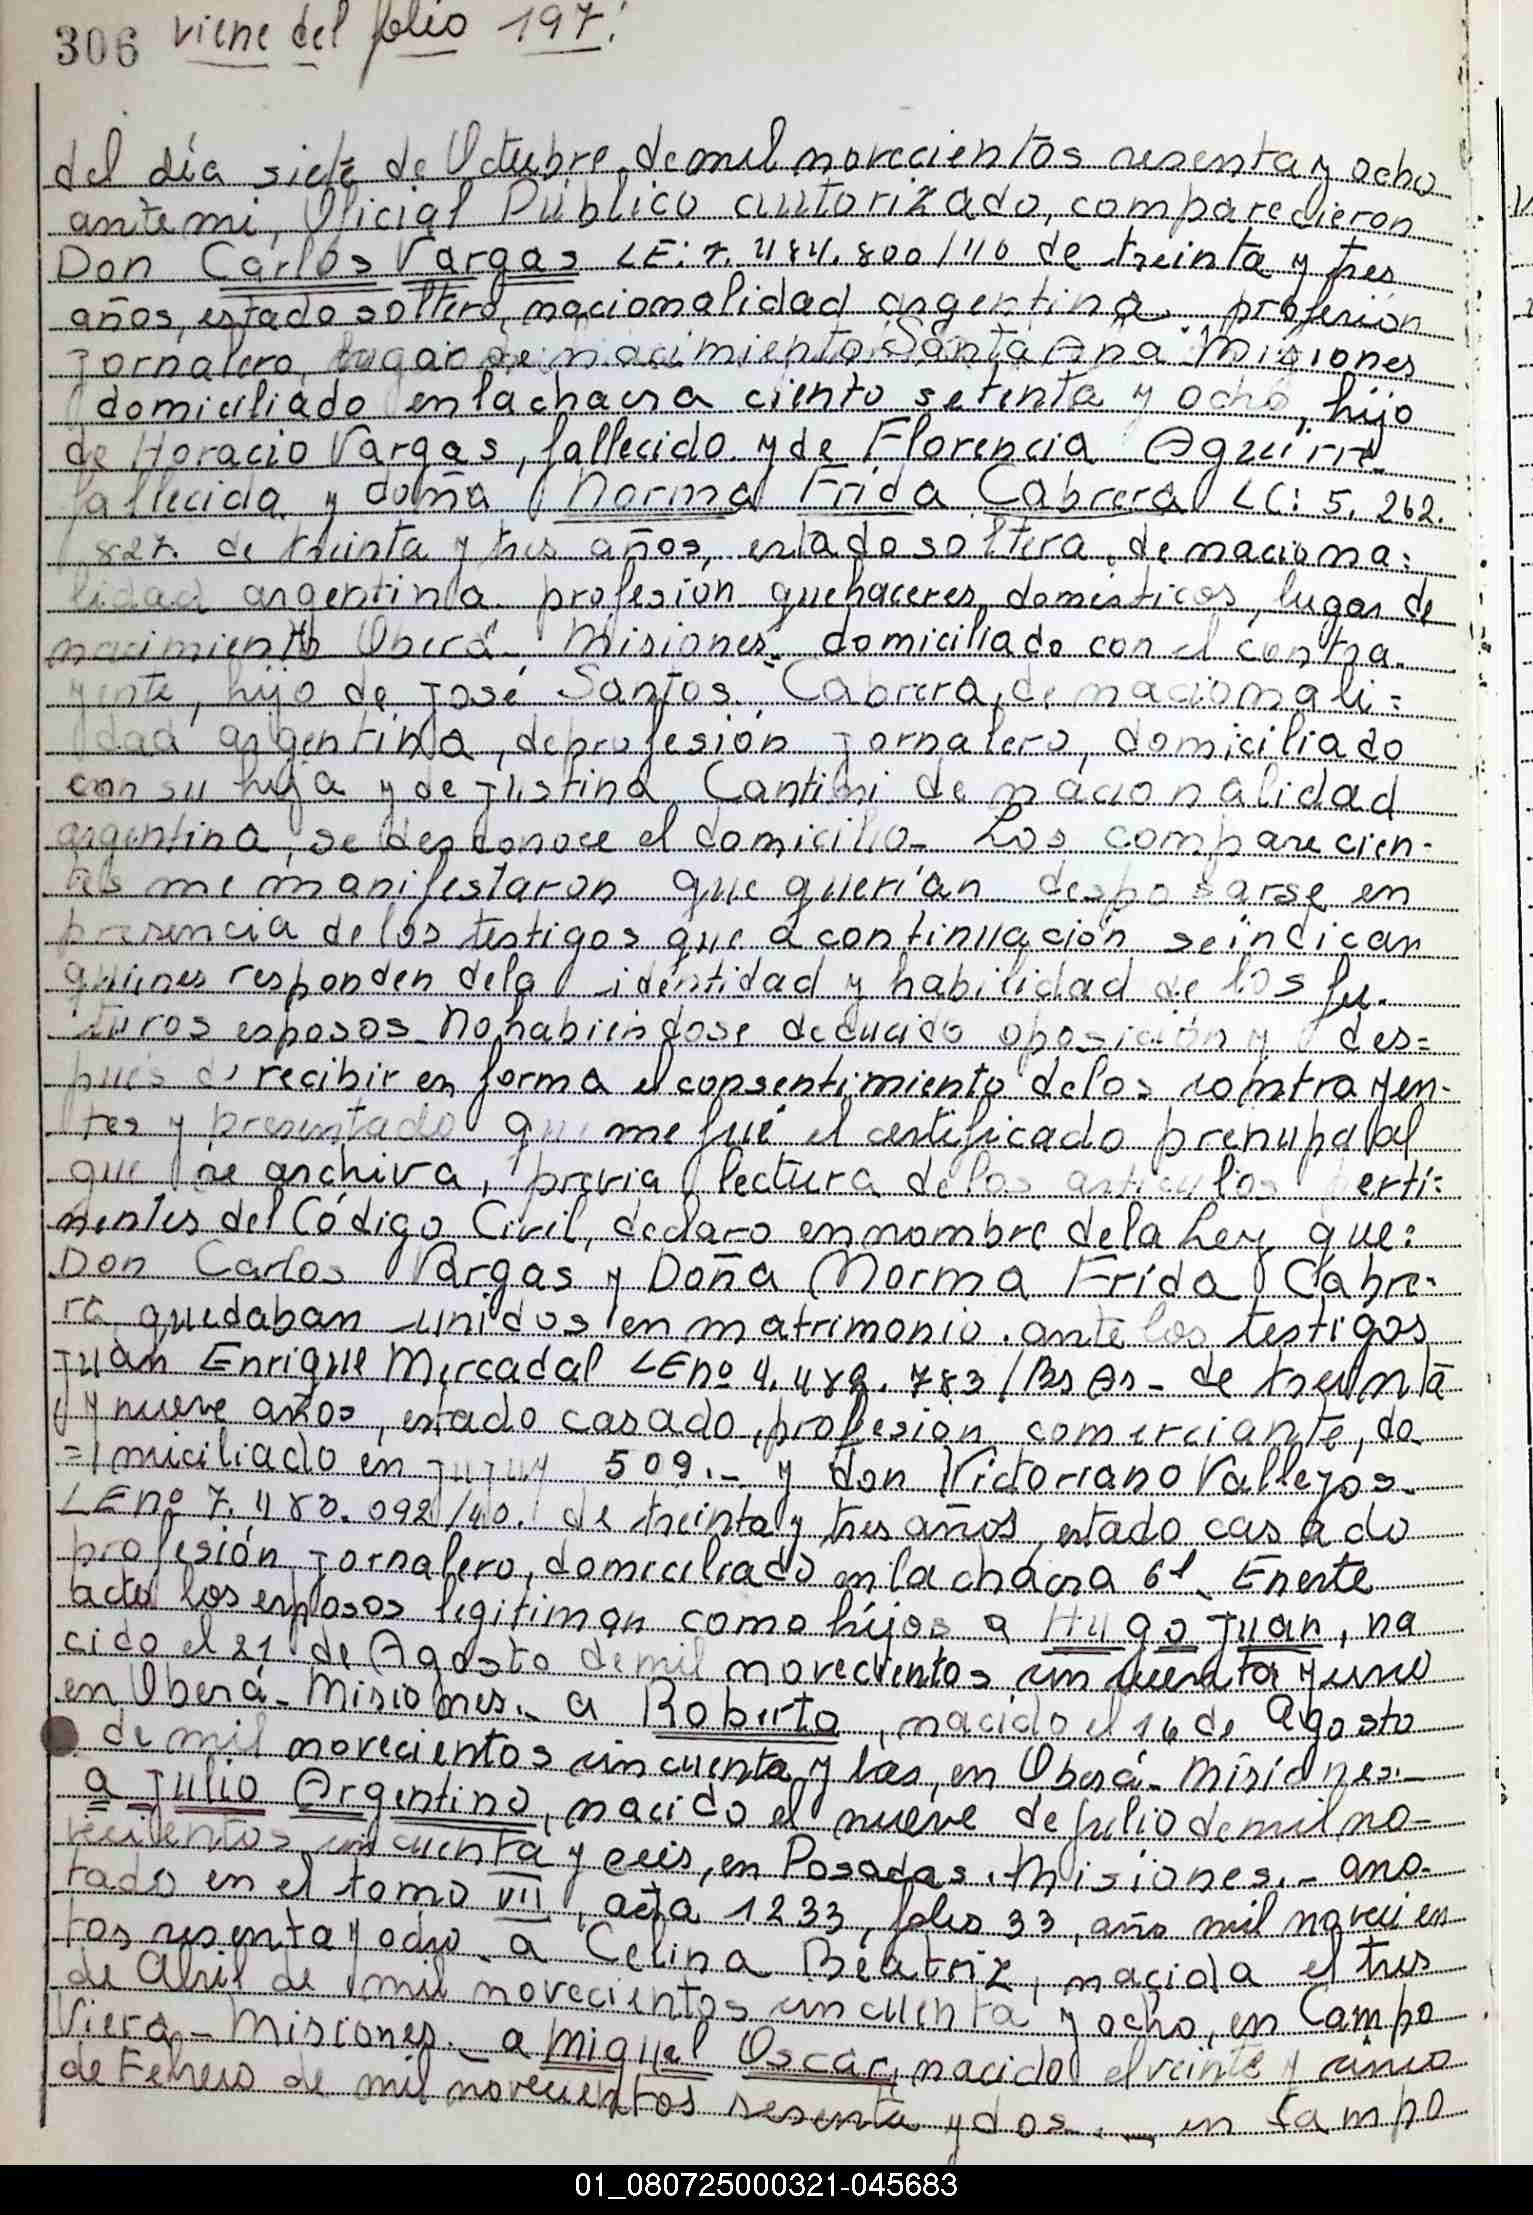 306 viene del folio 197.
del día siete de Octubre de mil novecientos sesenta y ocho
ante mi, Oficial Público autorizado, comparecieron
Don Carlos Vargas LE: 7.484.800/40 de treinta y tres
años, estado soltero, nacionalidad argentina profesión
jornalero, lugar de nacimiento Santa Ana Misiones
domiciliado en la chacra ciento setenta y ocho, hijo
de Horacio Vargas, fallecido y de Florencia Aguirre
fallecida y doña Norma Frida Cabrera LC: 5.262.
827. de treinta y tres años, estado soltera, de naciona=
lidad argentina profesion quehaceres domésticos, lugar de
nacimiento Oberá - Misiones- domiciliado con el contra-
yente, hijo de José Santos Cabrera, de nacionali=
dad argentina, de profesión jornalero, domiciliado
con su hija y de Justina Cantini de nacionalidad
argentina, se desconoce el domicilio- Los comparecien-
tes me manifestaron que querían desposarse en
presencia de los testigos que a continuación se indican
quienes responden de la identidad y habilidad de los fu-
turos esposos- No habiéndose deducido oposición y des=
pués de recibir en forma el consentimiento de los contrayen-
tes y presentado que me fué el certificado prenupcial
que se archiva, previa lectura de los artículos perti=
nentes del Código Civil, declaro en nombre de la Ley que:
Don Carlos Vargas y Doña Norma Frida Cabre-
ra quedaban unidos en matrimonio. ante los testigos
Juan Enrique Mercadal LE nº 4.482.783/Bs As- de treinta
y nueve años, estado casado, profesión comerciante, do
=miciliado en Jujuy 509.- y don Victoriano Vallejos-
LE nº 7.480.092/40. de treinta y tres años, estado casado
profesión jornalero, domiciliado en la chacra 61- En este
acto los esposos legitiman como hijos a Hugo Juan, na
cido el 21 de Agosto de mil novecientos cincuenta y uno
en Oberá- Misiones.- a Roberto, nacido el 16 de Agosto
de mil novecientos cincuenta y tres, en Oberá- Misiones.-
a Julio Argentino, nacido el nueve de julio de mil no-
vecientos cincuenta y seis, en Posadas. Misiones.- ano-
tado en el tomo VII, acta 1233, folio 33, año mil novecien
tos sesenta y ocho- a Celina Beatriz, nacida el tres
de Abril de mil novecientos cincuenta y ocho, en Campo
Viera- Misiones.- a Miguel Oscar, nacido el veinte y cinco
de Febrero de mil novecientos sesenta y dos.- en Campo
01_080725000321-045683